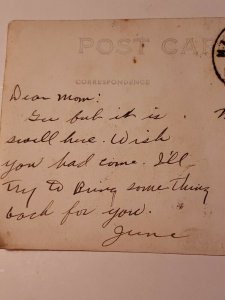 POST CAR
CORRESPONDENCE
Dear Mom:
Gee but it is
swell here. Wish
you had come. I'll
try to bring something
back for you.
June